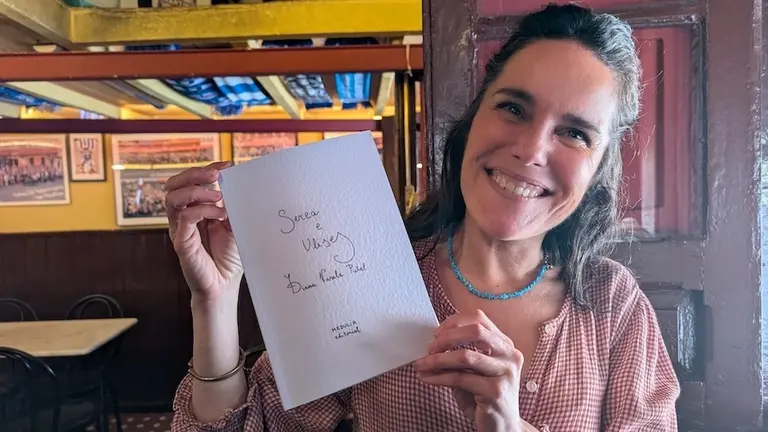 Serea
e
Ulises
Varela Pidal
MEDULIA
editorial